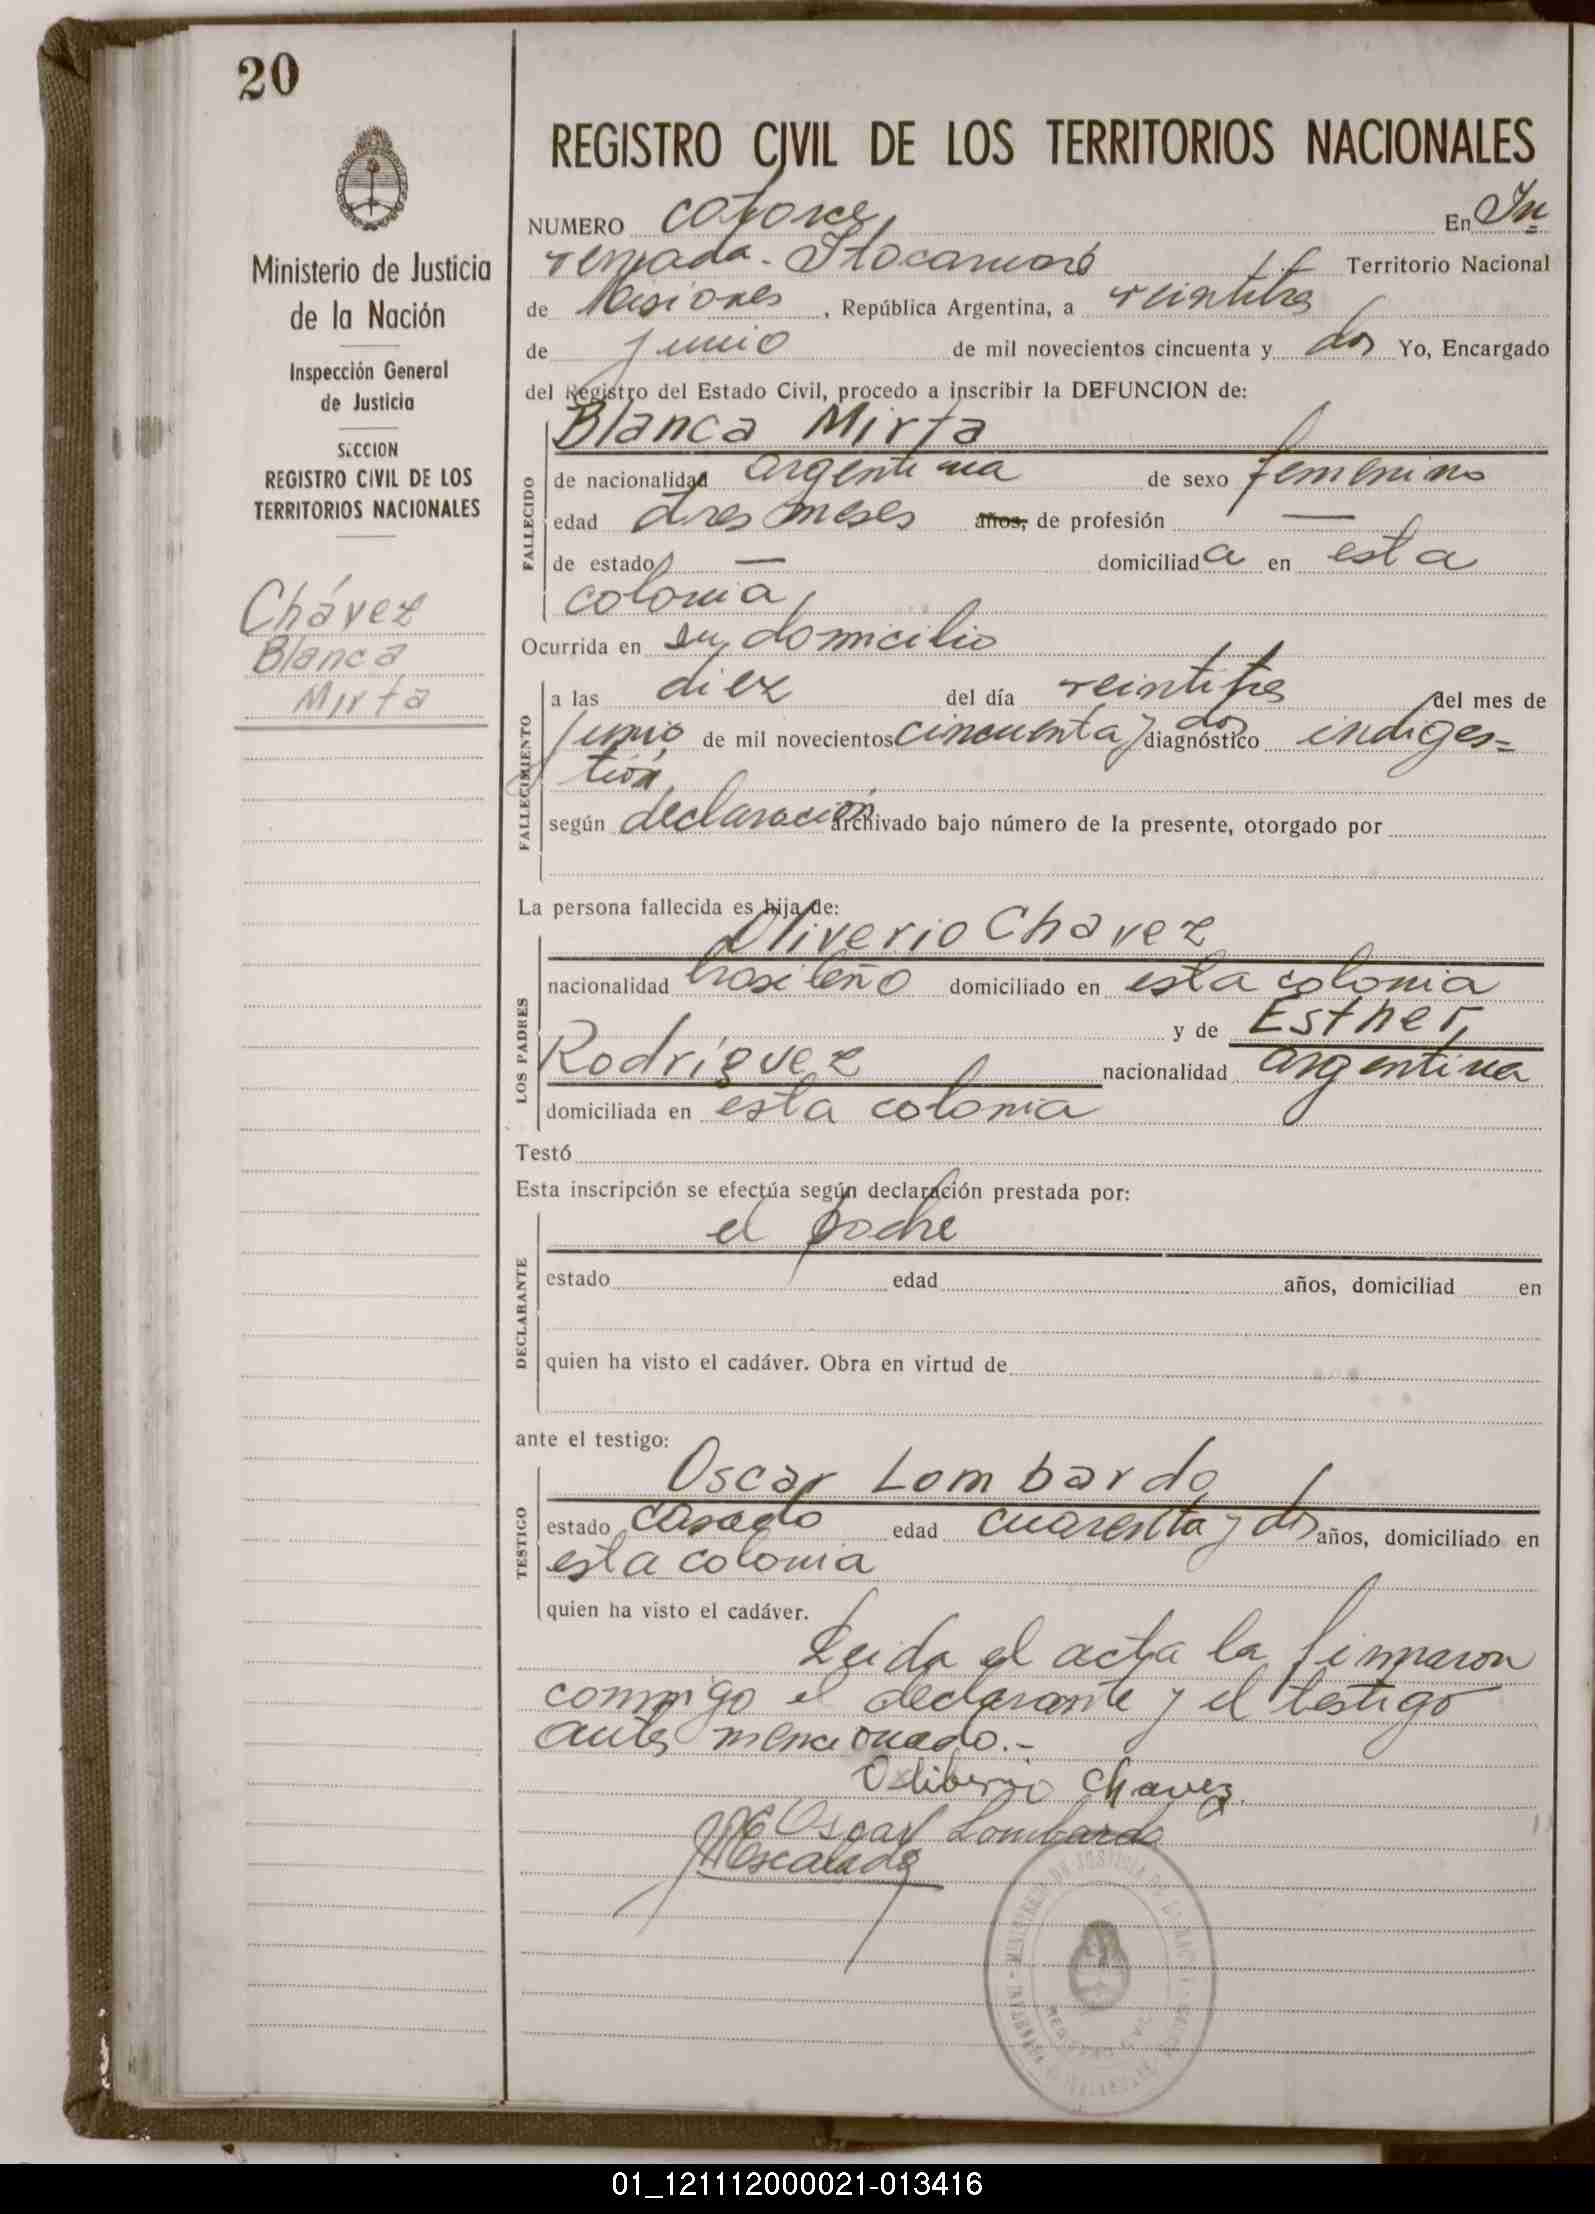 20
Ministerio de Justicia
de la Nación
Inspección General
de Justicia
SECCION
REGISTRO CIVIL DE LOS
TERRITORIOS NACIONALES
Chávez
Blanca
Mirta
REGISTRO CIVIL DE LOS TERRITORIOS NACIONALES
NUMERO catorce, En In
vernada- Itacaruaré Territorio Nacional
de Misiones, República Argentina, a veintitres
de junio de mil novecientos cincuenta y dos Yo, Encargado
del Registro del Estado Civil, procedo a inscribir la DEFUNCION de:
Blanca Mirta
FALLECIDO
de nacionalidad argentina de sexo femenino
edad tres meses años, de profesión —
de estado — domiciliada en esta
colonia,
Ocurrida en su domicilio
FALLECIMIENTO
a las diez del día veintitres del mes de
junio de mil novecientos cincuenta y dos diagnóstico indiges=
tión
según declaración archivado bajo número de la presente, otorgado por
La persona fallecida es hija de:
LOS PADRES
Oliverio Chavez
nacionalidad brasileño domiciliado en esta colonia
y de Esther,
Rodríguez nacionalidad argentina
domiciliada en esta colonia
Testó
Esta inscripción se efectúa según declaración prestada por:
DECLARANTE
el padre
estado edad años, domiciliad en
quien ha visto el cadáver. Obra en virtud de
ante el testigo:
TESTIGO
Oscar Lombardo
estado casado edad cuarenta y dos años, domiciliado en
esta colonia
quien ha visto el cadáver.
Leida el acta la firmaron
conmigo el declarante y el testigo
antes mencionado.-
Chavez.
Oscar Lombardo
MINISTERIO DE JUSTICIA DE LA NACION
REGISTRO CIVIL
01_121112000021-013416